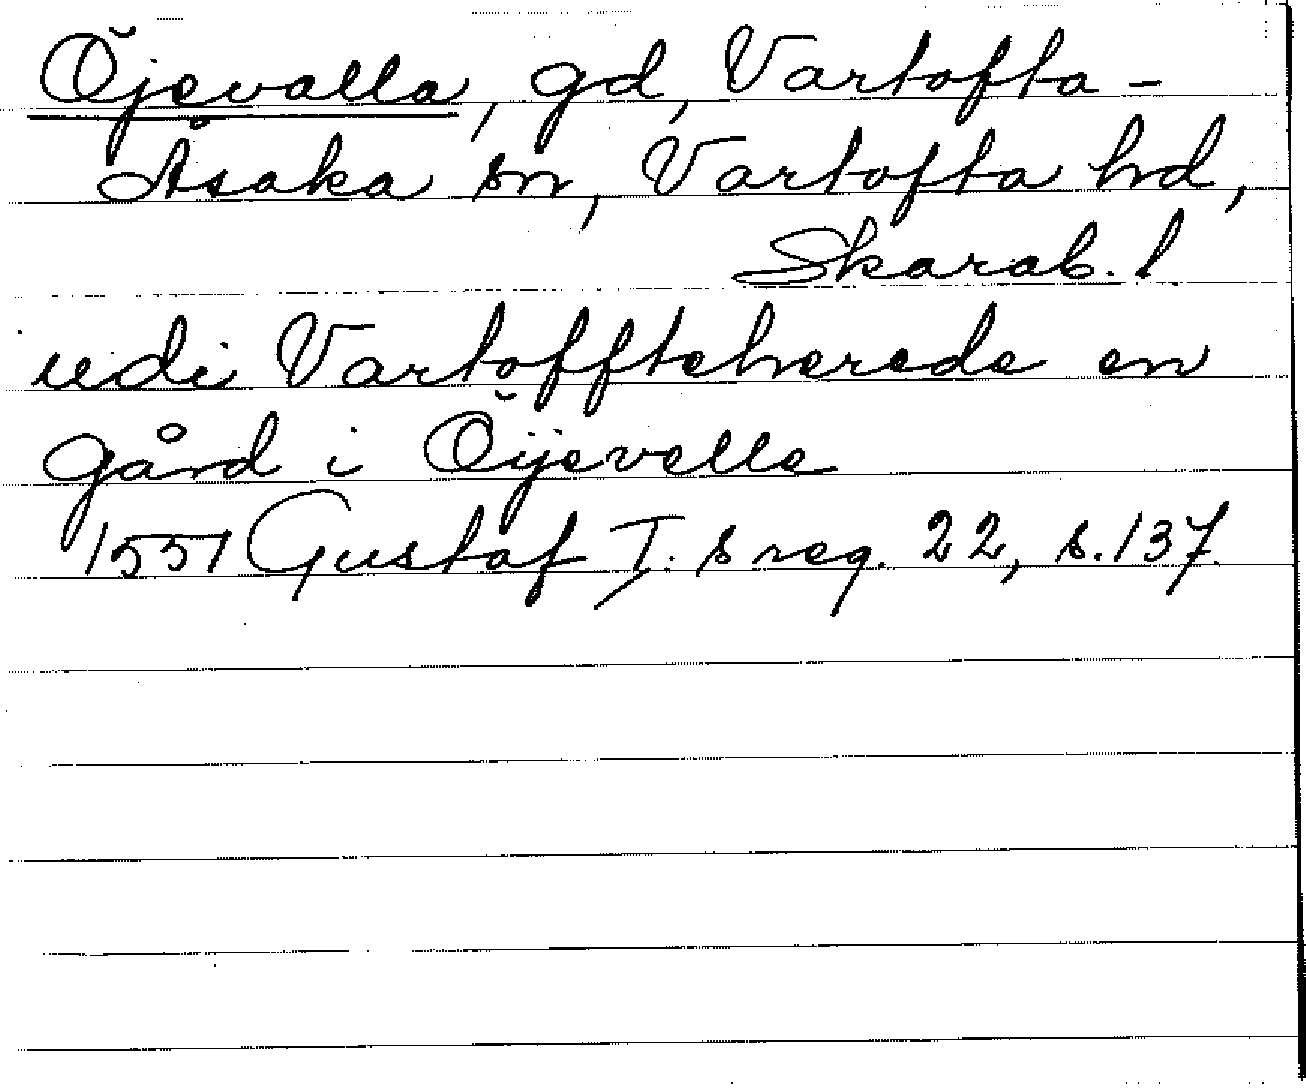 Öjevalla, gd, Vartofta-
Åsaka sn, Vartofta hd,
Skarab. l
udi Vartoffteherede en
gård i Öijevelle
1551 Gustaf I:s reg. 22, s. 137.